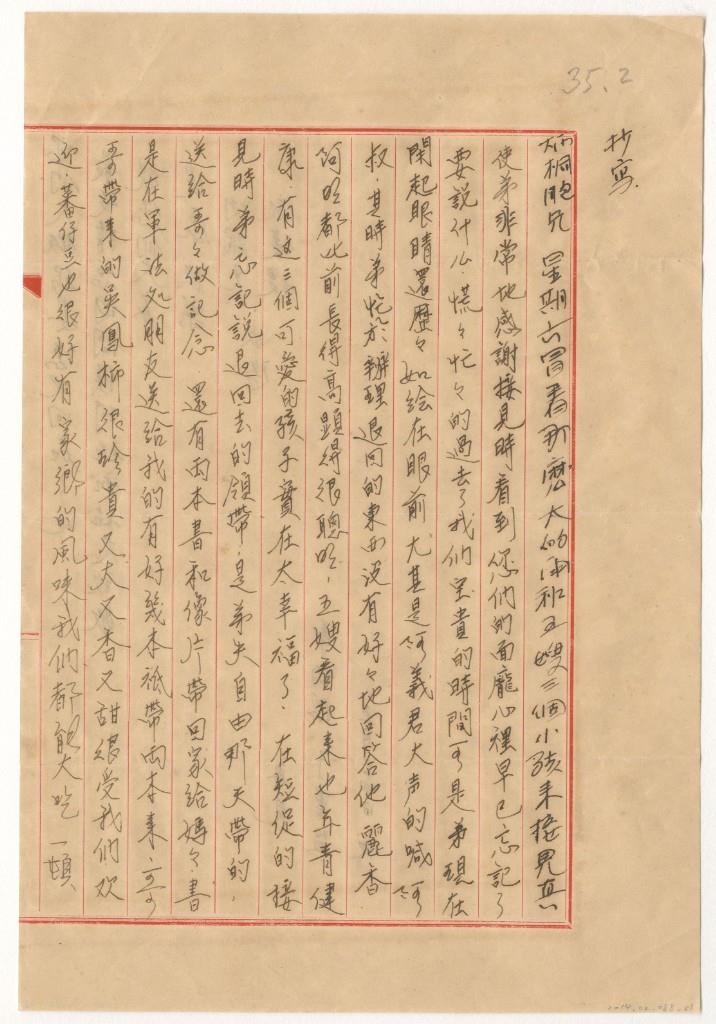 35.2
抄寫
炳桐胞兄 星期六冒着那麽大的雨和五嫂三個小孩来接見真
使弟非常地感謝接見時看到您们的面龐心裡早已忘記了
要説什么.慌々忙々的過去了我们宝貴的時間可是弟現在
閉起眼睛還歷々如绘在眼前尤其是阿義君大声的喊阿
叔.其時弟忙於辦理退回的東西没有好々地回答他.麗香
阿旼都比前長得高顕得很聰明,五嫂看起来也年青健
康.有这三個可愛的孩子實在太幸福了.在短促的接
見時弟忘記説退回去的領帶.是弟失自由那天帶的.
送給哥々做記念.還有両本書和像片帶回家给媽々.書
是在軍法処朋友送给我的有好幾本祇帶両本来.哥
哥帶来的吴鳳柿很珍貴又大又香又甜很受我们欢
迎.蕃仔豆也很好有家鄉的風味我们都能大吃一頓